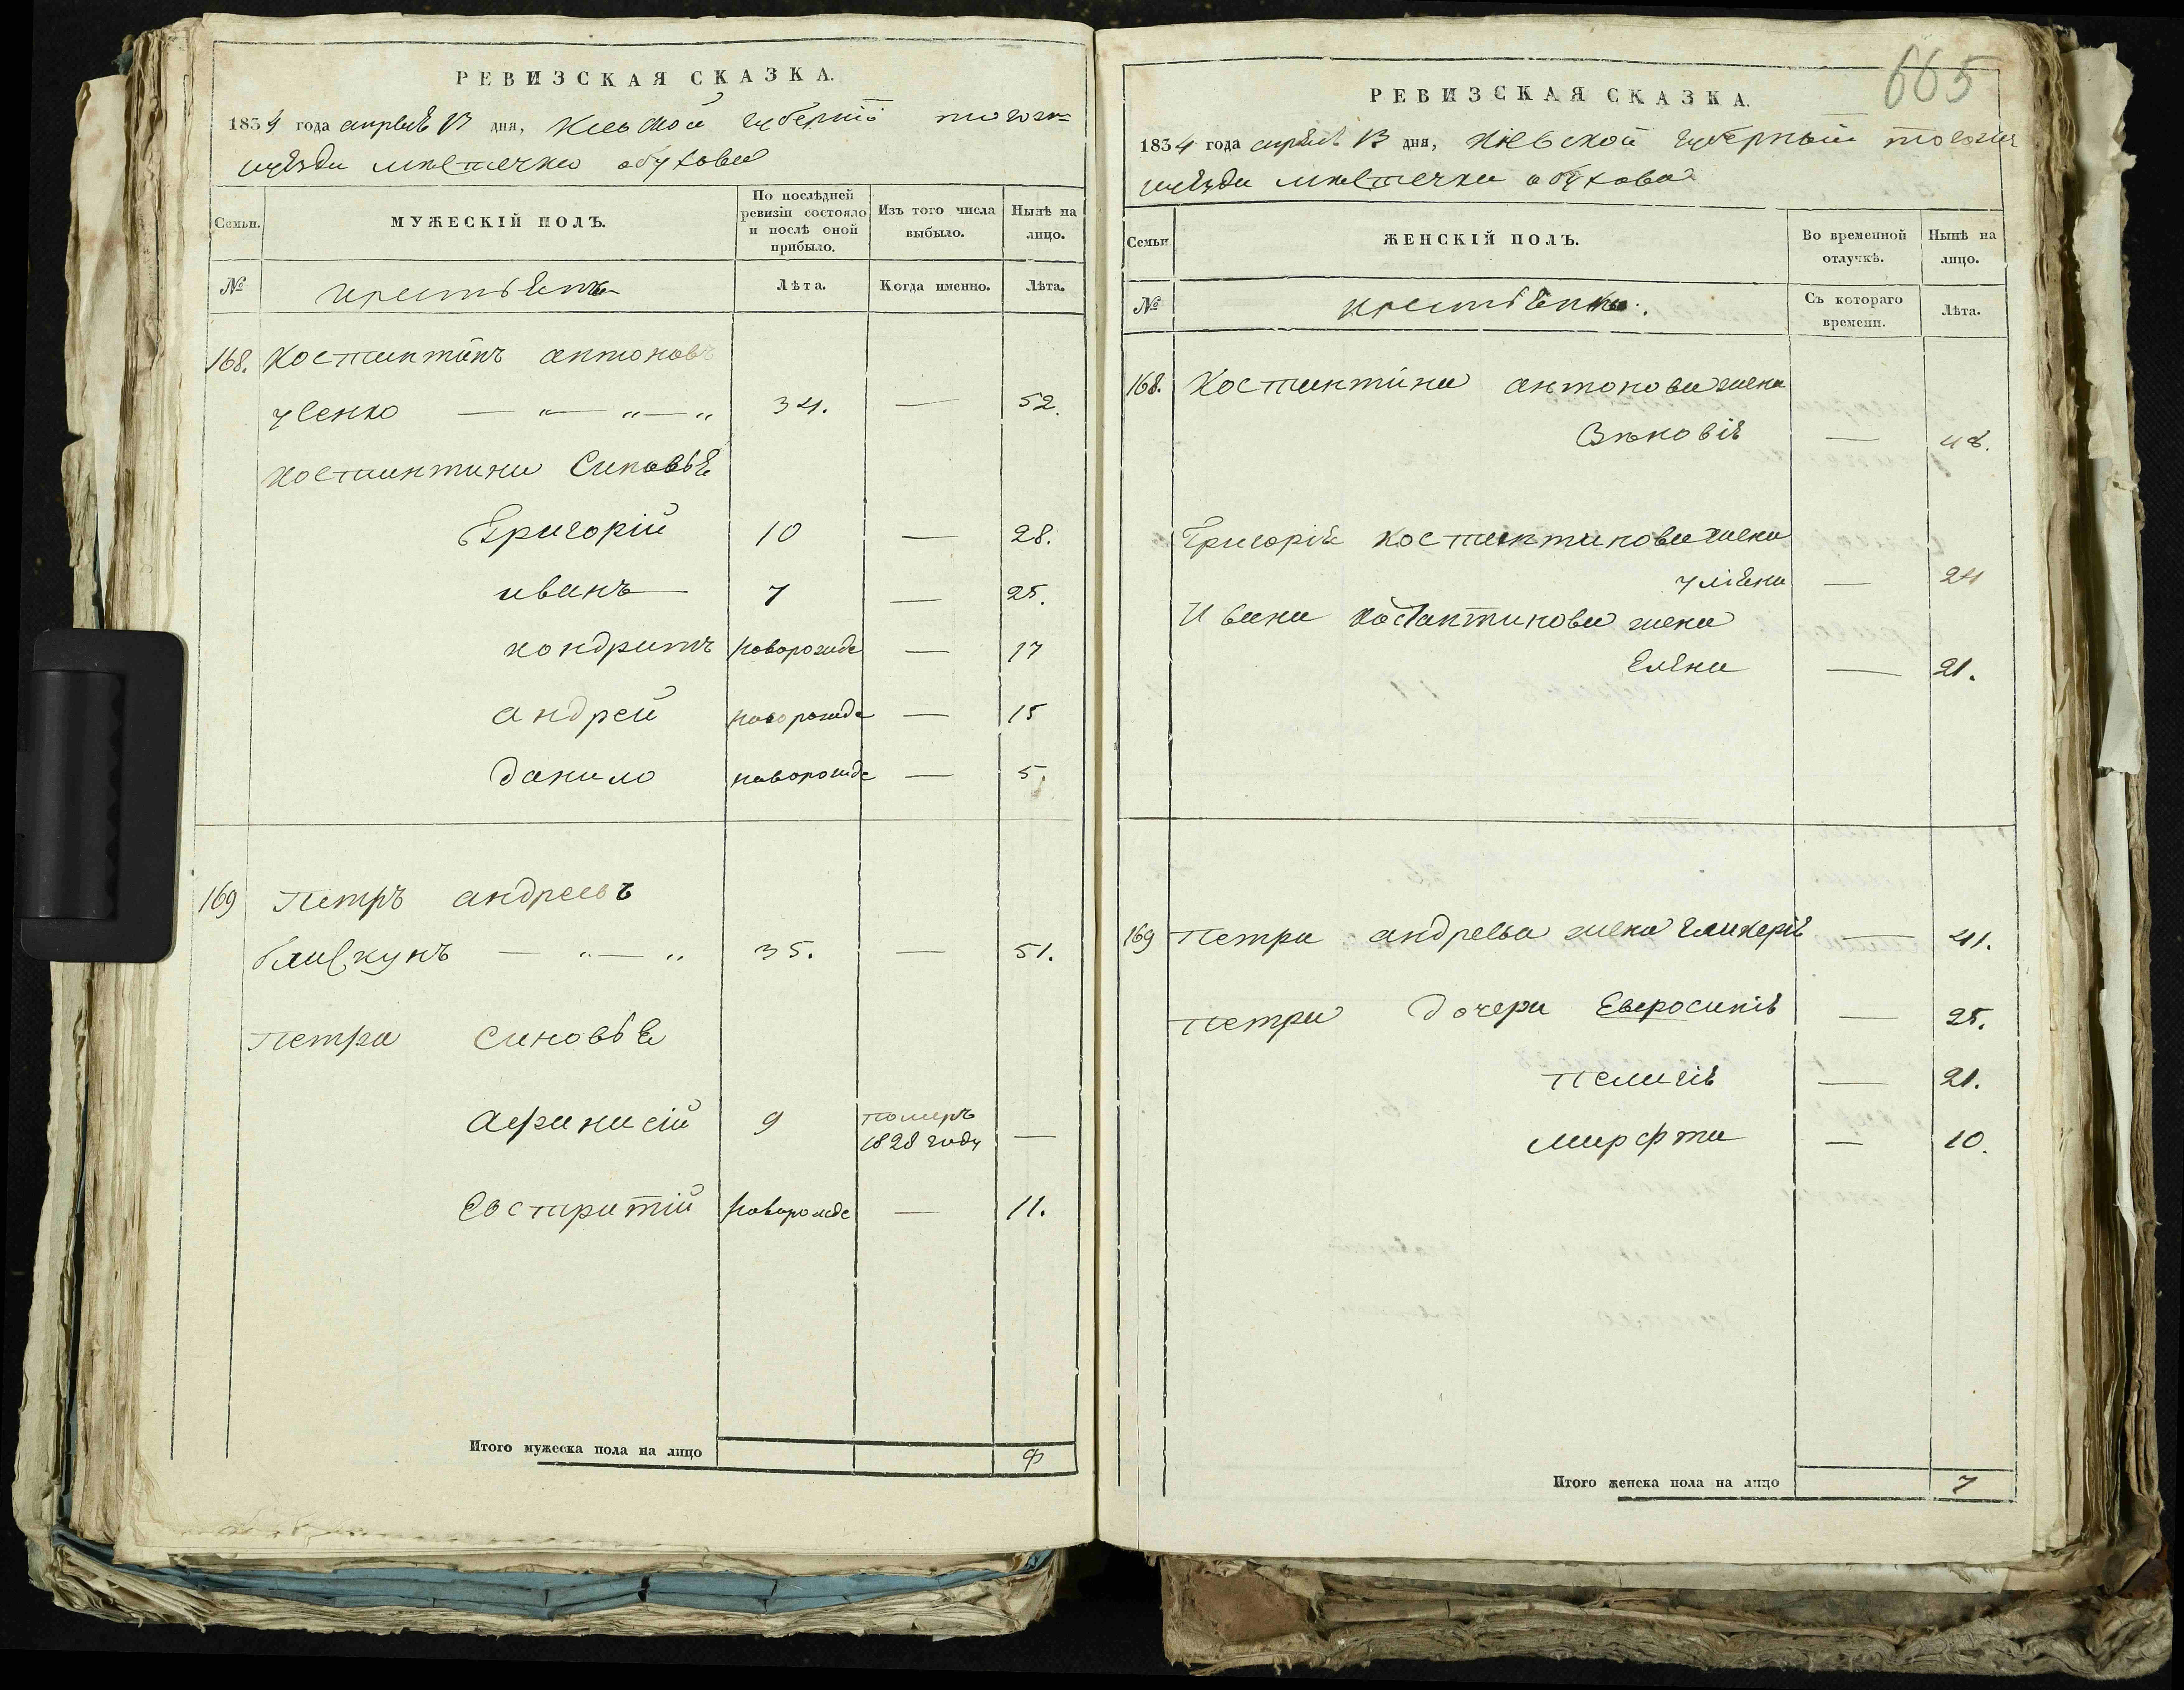 РЕВИЗСКАЯ СКАЗКА.
1834 года апреля 13 дня, Киевской губернiи тогож
уезда местечка обухова
Семьи.
МУЖЕСКIЙ ПОЛЪ.
По послѣдней ревизiи состояло и послѣ оной прибыло.
Изъ того числа выбыло.
Нынѣ на лицо.
№
Лѣта.
Когда именно.
Лѣта.
168. Костантинъ антоновъ
34. — 52.
Костантина Синовѣе
Григорiй 10 — 28.
иванъ 7 — 25.
кондратъ новорожде — 17
андрей новорожде — 15
данило новорожде — 5.
169 Петръ андреевъ
35. — 51.
Петра Синовѣе
Афанасiй 9 померъ 1828 году —
Евстратiй новорожде — 11.
Итого мужеска пола на лицо
665
РЕВИЗСКАЯ СКАЗКА.
1834 года апреля 13 дня, Кiевской губернiи тогож
уезда местечка обухова
Семьи
ЖЕНСКIЙ ПОЛЪ.
Во временной отлучкѣ.
Нынѣ на лицо.
№
Съ котораго времени.
Лѣта.
168. Костантина антонова жена
Зѣновiя — 48.
Григорiя костантинова жена
улiяна — 24
Ивана костантинова жена
Елена — 21.
169 Петра андреева жена Гликерiя — 41.
Петра дочери Евфросинiя — 25.
Пелагiя — 21.
марфта — 10.
Итого женска пола на лицо 7